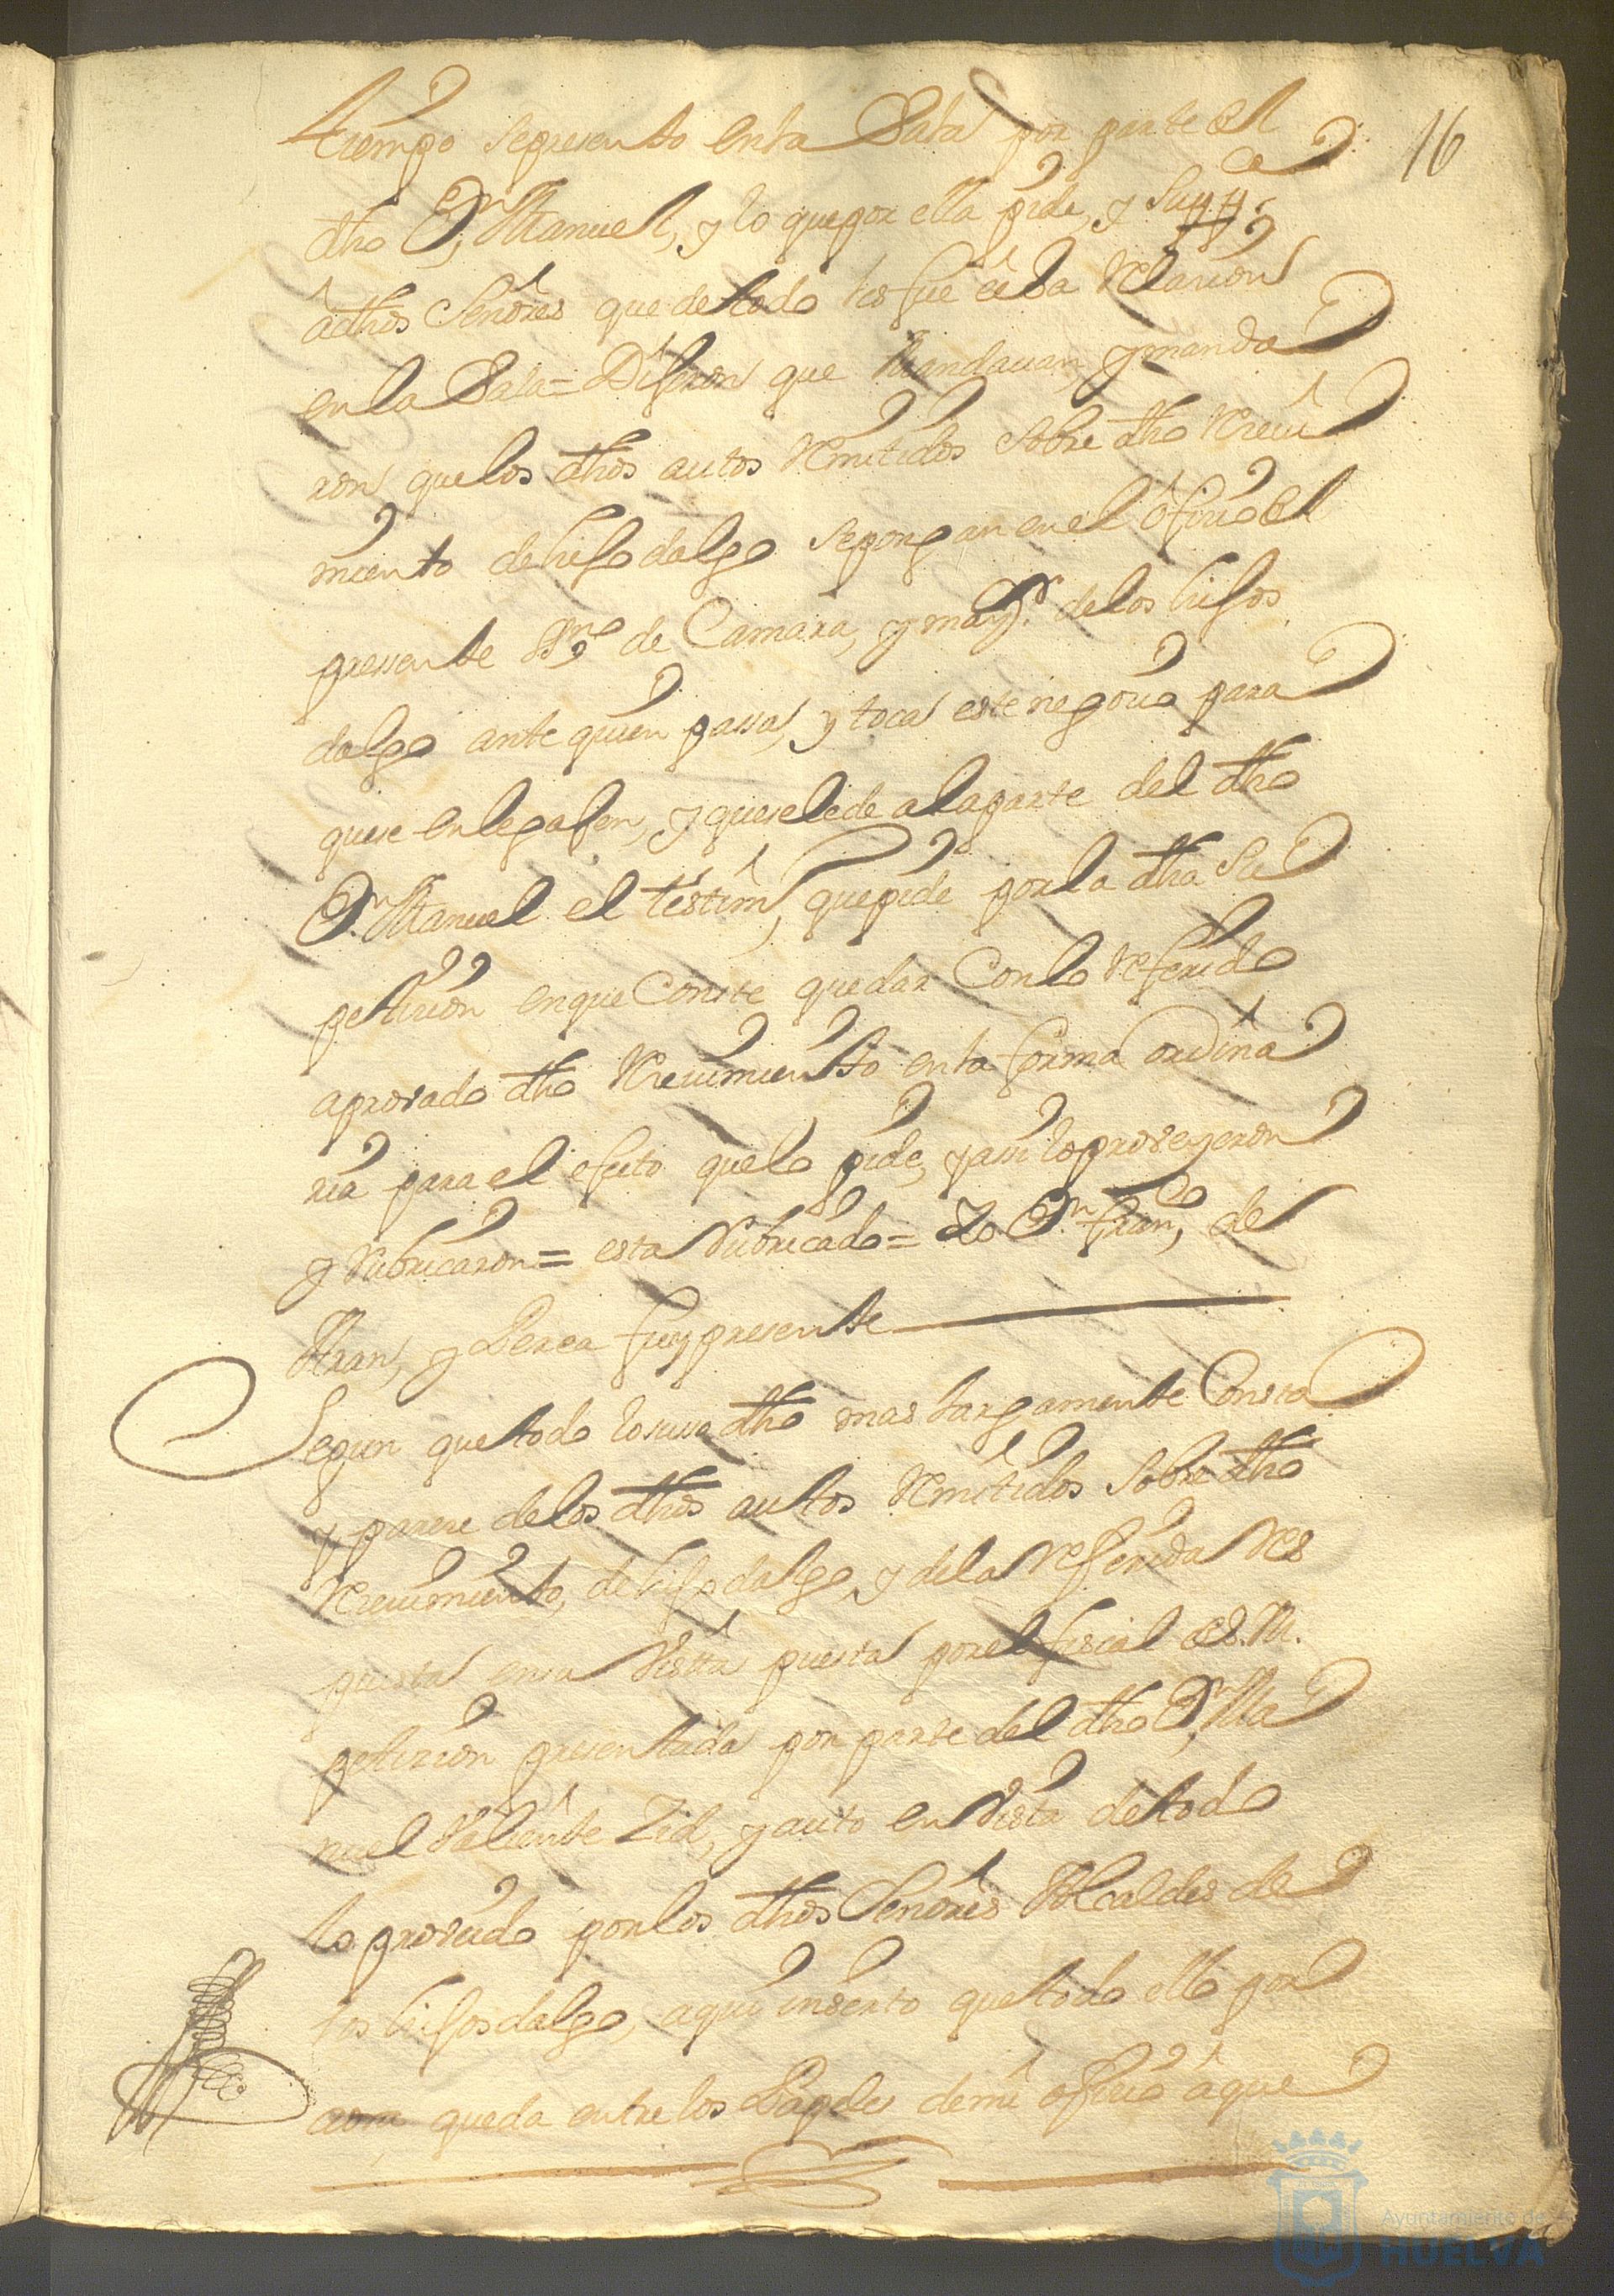 16
tiempo sepresento enla Sala por parte del
dho Dn Manuel, y lo quepor ella pide, y Supp.ca
adhos Señores que detodo les fue echa Relacion
en la Sala = Dijeron que Mandauan, y manda
ron, quelos dhos autos Remitidos sobre dho Reciui
miento dehijo dalgo sepongan enel ofiçio del
pressente Ss.no de Camara, y may.r delos hijos
dalgo ante quien passa, y toca este negocio para
quese enlegajen, y queselede alaparte del dho
Dn Manuel el testimo, quepide porla dha Su
peticion enque Conste quedar Conlo Referido
aprovado dho Reciuimiento enla forma ordina
ria para el efecto quelo pide, yassi loproveyeron
y Rubricaron = esta Rubricado = Yo Dn Fran,co de
Aran, y Perea fuy presente
Segun quetodo losusso dho mas largamente Consta
y parece delos dhos autos Remitidos sobre dho
Reciuimiento, dehijo dalgo, y dela Referida Res
puesta ensu Vista puesta porel fiscal de S.M.
peticion presentada por parte del dho Dn Ma
nuel Valiente Zid, y auto en Vista detodo
lo proveido porlos dhos Señores Alcaldes de
los hijosdalgo, aqui inserto quetodo ello por
aora queda entrelos Papeles demi ofiçio aque
Ayuntamiento de
HUELVA